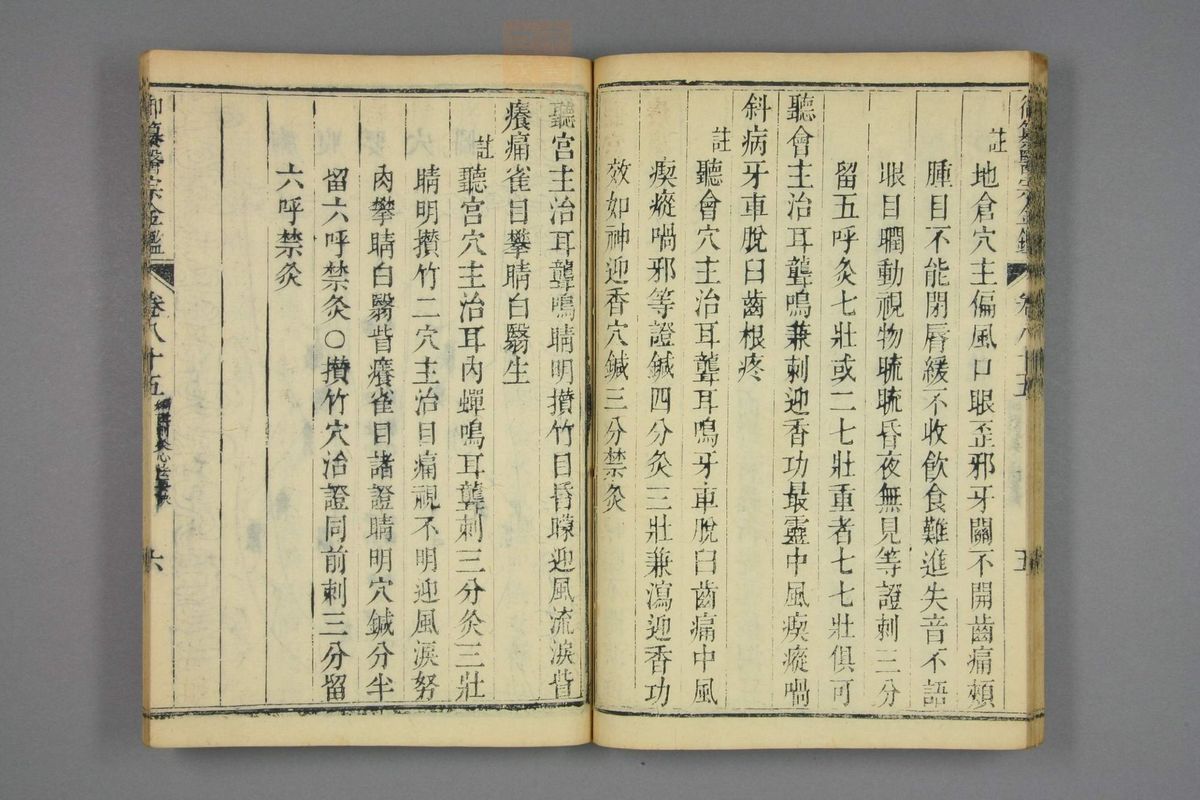 御纂醫宗金鑑 卷八十五 五
註 地倉穴主偏風口眼歪邪牙關不開齒痛頰
腫目不能閉脣緩不收飲食難進失音不語
眼目瞤動視物䀮䀮昏夜無見等證刺三分
留五呼灸七壯或二七壯重者七七壯俱可
聽會主治耳聾鳴兼刺迎香功最靈中風瘈瘲喎
斜病牙車脫臼齒根疼
註 聽會穴主治耳聾耳鳴牙車脫臼齒痛中風
瘈瘲喎邪等證鍼四分灸三壯兼瀉迎香功
效如神迎香穴鍼三分禁灸
聽宮主治耳聾鳴睛明攢竹目昏矇迎風流淚眥
癢痛雀目攀睛白翳生
註 聽宮穴主治耳內蟬鳴耳聾刺三分灸三壯
睛明攢竹二穴主治目痛視不明迎風淚努
肉攀睛白翳眥癢雀目諸證睛明穴鍼分半
留六呼禁灸○攢竹穴治證同前刺三分留
六呼禁灸
御纂醫宗金鑑 卷八十五 編輯刺灸心法要訣 六